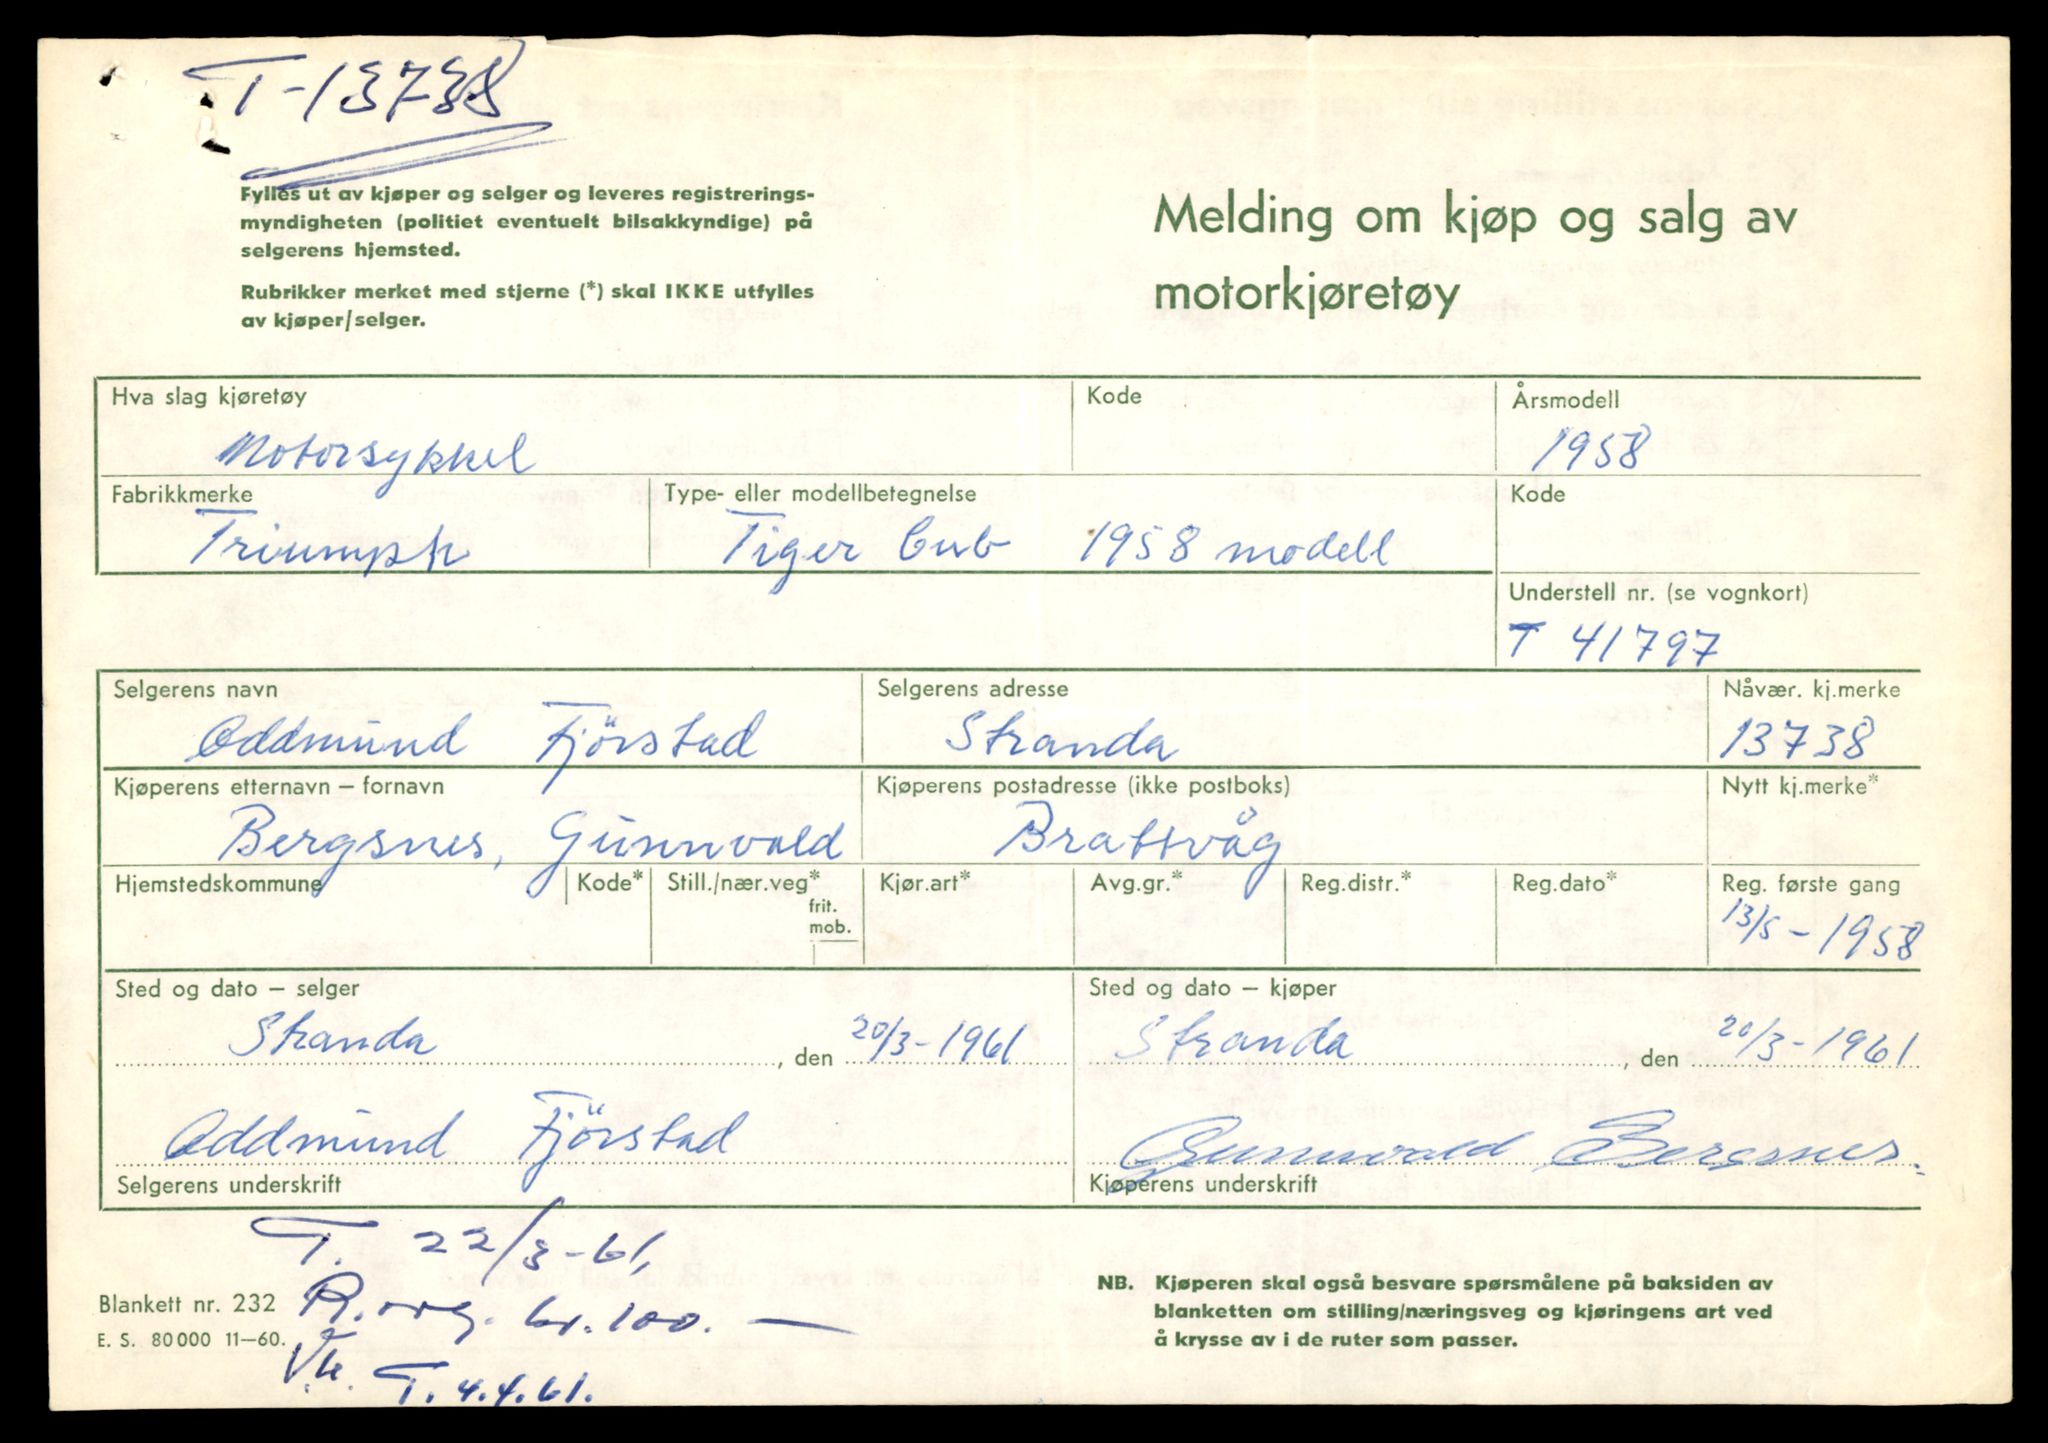 T-13738
Fylles ut av kjøper og selger og leveres registrerings-
myndigheten (politiet eventuelt bilsakkyndige) på
selgerens hjemsted.
Rubrikker merket med stjerne (*) skal IKKE utfylles
av kjøper/selger.
Melding om kjøp og salg av
motorkjøretøy
Hva slag kjøretøy
Motorsykkel
Kode
Årsmodell
1958
Fabrikkmerke
Triumph
Type- eller modellbetegnelse
Tiger Cub 1958 modell
Kode
Understell nr. (se vognkort)
T 41797
Selgerens navn
Oddmund Fjörstad
Selgerens adresse
Stranda
Nåvær. kj.merke
13738
Kjøperens etternavn – fornavn
Bergsnes, Gunnvald
Kjøperens postadresse (ikke postboks)
Brattvåg
Nytt kj.merke*
Hjemstedskommune
Kode*
Still./nær.veg*
frit.
mob.
Kjør.art*
Avg.gr.*
Reg.distr.*
Reg.dato*
Reg. første gang
13/5 – 1958
Sted og dato – selger
Stranda , den 20/3 – 1961
Oddmund Fjörstad
Selgerens underskrift
Sted og dato – kjøper
Stranda , den 20/3 – 1961
Gunnvald Bergsnes.
Kjøperens underskrift
T. 22/3-61,
R. org. kr. 100. —
T. 4.4.61.
Blankett nr. 232
E. S. 80 000 11–60.
NB. Kjøperen skal også besvare spørsmålene på baksiden av
blanketten om stilling/næringsveg og kjøringens art ved
å krysse av i de ruter som passer.